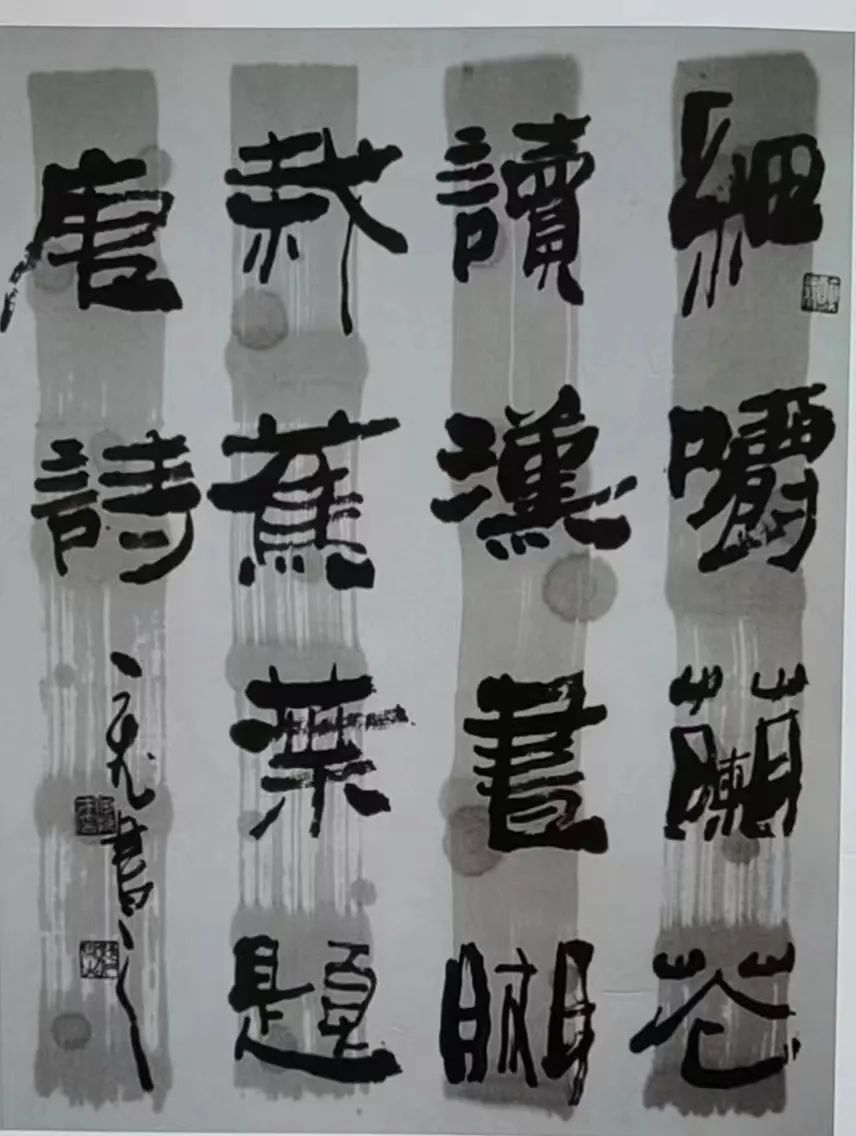 細嚼蘭花
讀漢書閑
栽蕉葉題
唐詩
書之